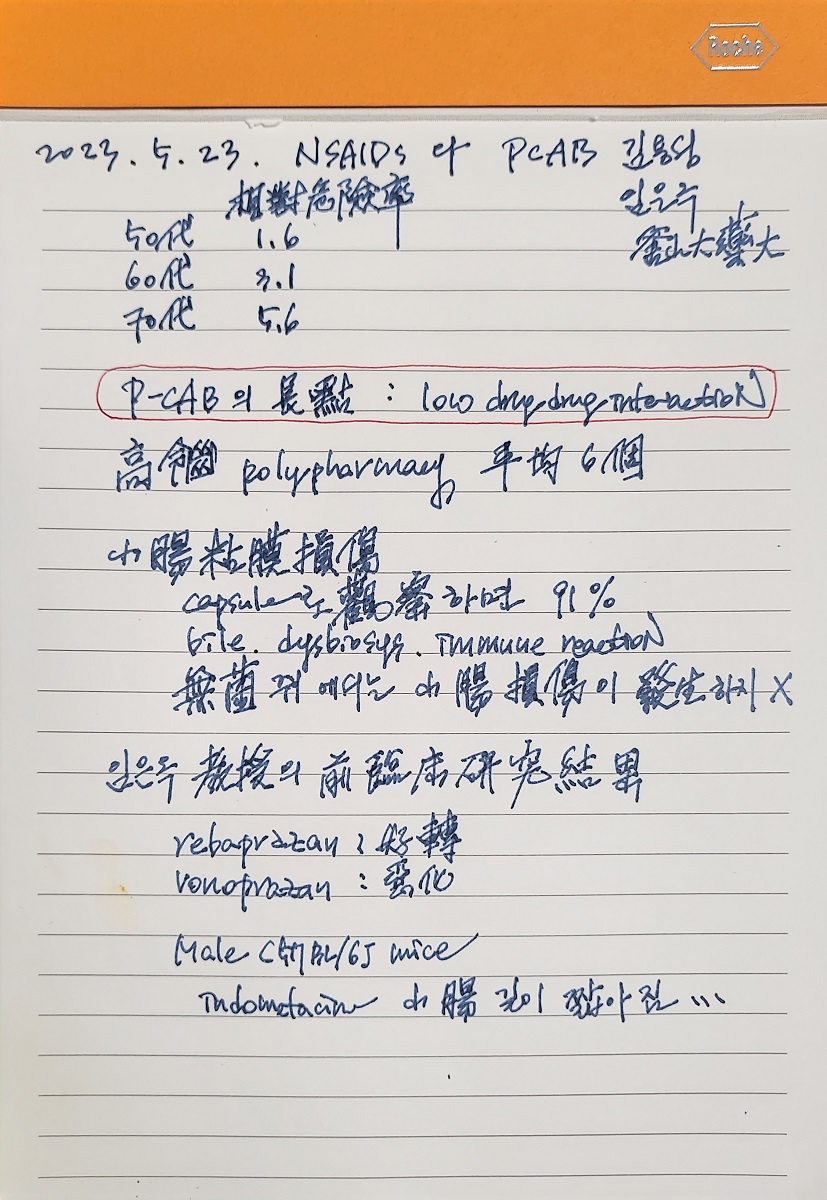 Roche
2023. 5. 23. NSAIDs 와 PCAB 김용성
相對危險率 임은주
50代 1.6 釜山大藥大
60代 3.1
70代 5.6
P-CAB의 長點 : low drug drug interaction
高令 polypharmacy 平均 6個
小腸粘膜損傷
capsule로 觀察하면 91%
bile. dysbiosys. immune reaction
無菌쥐에서는 小腸損傷이 發生하지 X
임은주 敎授의 前臨床硏究結果
rebaprazan : 好轉
vonoprazan : 惡化
Male C57BL/6J mice
indometacin 小腸 길이 짧아짐 ...